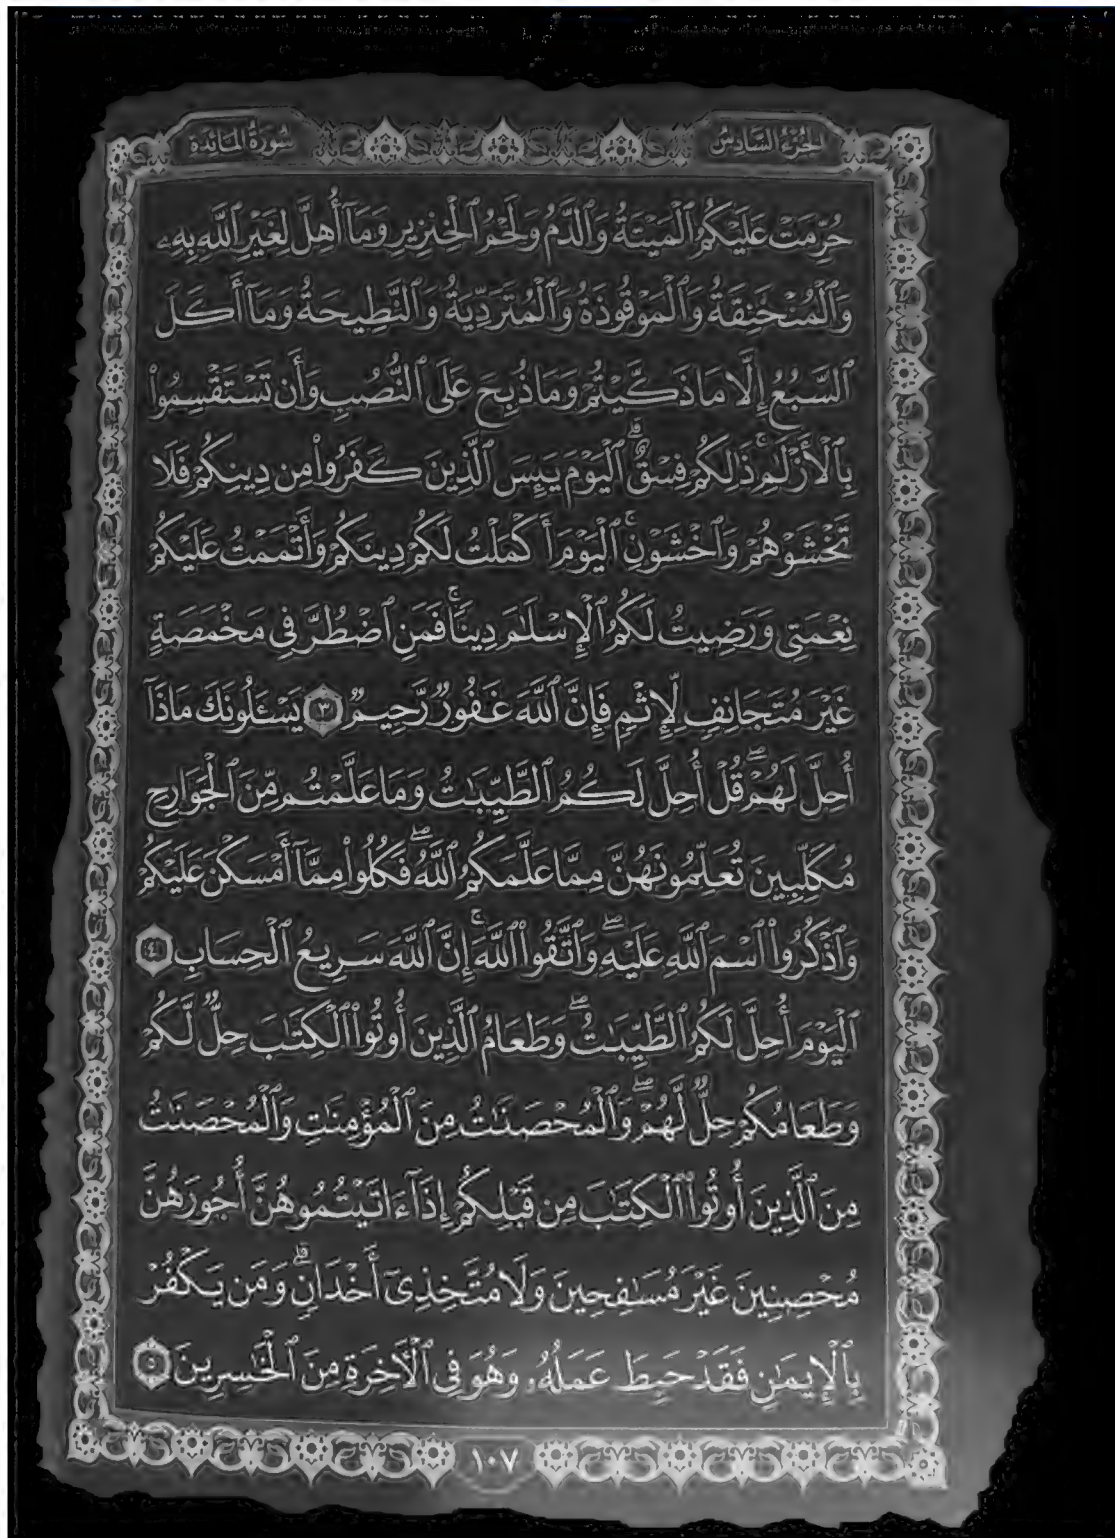 الجزء السادس
سورة المائدة
حُرِّمَتْ عَلَيْكُمُ ٱلْمَيْتَةُ وَٱلدَّمُ وَلَحْمُ ٱلْخِنزِيرِ وَمَآ أُهِلَّ لِغَيْرِ ٱللَّهِ بِهِۦ
وَٱلْمُنْخَنِقَةُ وَٱلْمَوْقُوذَةُ وَٱلْمُتَرَدِّيَةُ وَٱلنَّطِيحَةُ وَمَآ أَكَلَ
ٱلسَّبُعُ إِلَّا مَا ذَكَّيْتُمْ وَمَا ذُبِحَ عَلَى ٱلنُّصُبِ وَأَن تَسْتَقْسِمُوا۟
بِٱلْأَزْلَٰمِ ۚ ذَٰلِكُمْ فِسْقٌ ۗ ٱلْيَوْمَ يَئِسَ ٱلَّذِينَ كَفَرُوا۟ مِن دِينِكُمْ فَلَا
تَخْشَوْهُمْ وَٱخْشَوْنِ ۚ ٱلْيَوْمَ أَكْمَلْتُ لَكُمْ دِينَكُمْ وَأَتْمَمْتُ عَلَيْكُمْ
نِعْمَتِى وَرَضِيتُ لَكُمُ ٱلْإِسْلَٰمَ دِينًا ۚ فَمَنِ ٱضْطُرَّ فِى مَخْمَصَةٍ
غَيْرَ مُتَجَانِفٍ لِّإِثْمٍ فَإِنَّ ٱللَّهَ غَفُورٌ رَّحِيمٌ ٣ يَسْـَٔلُونَكَ مَاذَآ
أُحِلَّ لَهُمْ ۖ قُلْ أُحِلَّ لَكُمُ ٱلطَّيِّبَٰتُ وَمَا عَلَّمْتُم مِّنَ ٱلْجَوَارِحِ
مُكَلِّبِينَ تُعَلِّمُونَهُنَّ مِمَّا عَلَّمَكُمُ ٱللَّهُ ۖ فَكُلُوا۟ مِمَّآ أَمْسَكْنَ عَلَيْكُمْ
وَٱذْكُرُوا۟ ٱسْمَ ٱللَّهِ عَلَيْهِ ۖ وَٱتَّقُوا۟ ٱللَّهَ ۚ إِنَّ ٱللَّهَ سَرِيعُ ٱلْحِسَابِ ٤
ٱلْيَوْمَ أُحِلَّ لَكُمُ ٱلطَّيِّبَٰتُ ۖ وَطَعَامُ ٱلَّذِينَ أُوتُوا۟ ٱلْكِتَٰبَ حِلٌّ لَّكُمْ
وَطَعَامُكُمْ حِلٌّ لَّهُمْ ۖ وَٱلْمُحْصَنَٰتُ مِنَ ٱلْمُؤْمِنَٰتِ وَٱلْمُحْصَنَٰتُ
مِنَ ٱلَّذِينَ أُوتُوا۟ ٱلْكِتَٰبَ مِن قَبْلِكُمْ إِذَآ ءَاتَيْتُمُوهُنَّ أُجُورَهُنَّ
مُحْصِنِينَ غَيْرَ مُسَٰفِحِينَ وَلَا مُتَّخِذِىٓ أَخْدَانٍ ۗ وَمَن يَكْفُرْ
بِٱلْإِيمَٰنِ فَقَدْ حَبِطَ عَمَلُهُۥ وَهُوَ فِى ٱلْـَٔاخِرَةِ مِنَ ٱلْخَٰسِرِينَ ٥
١٠٧